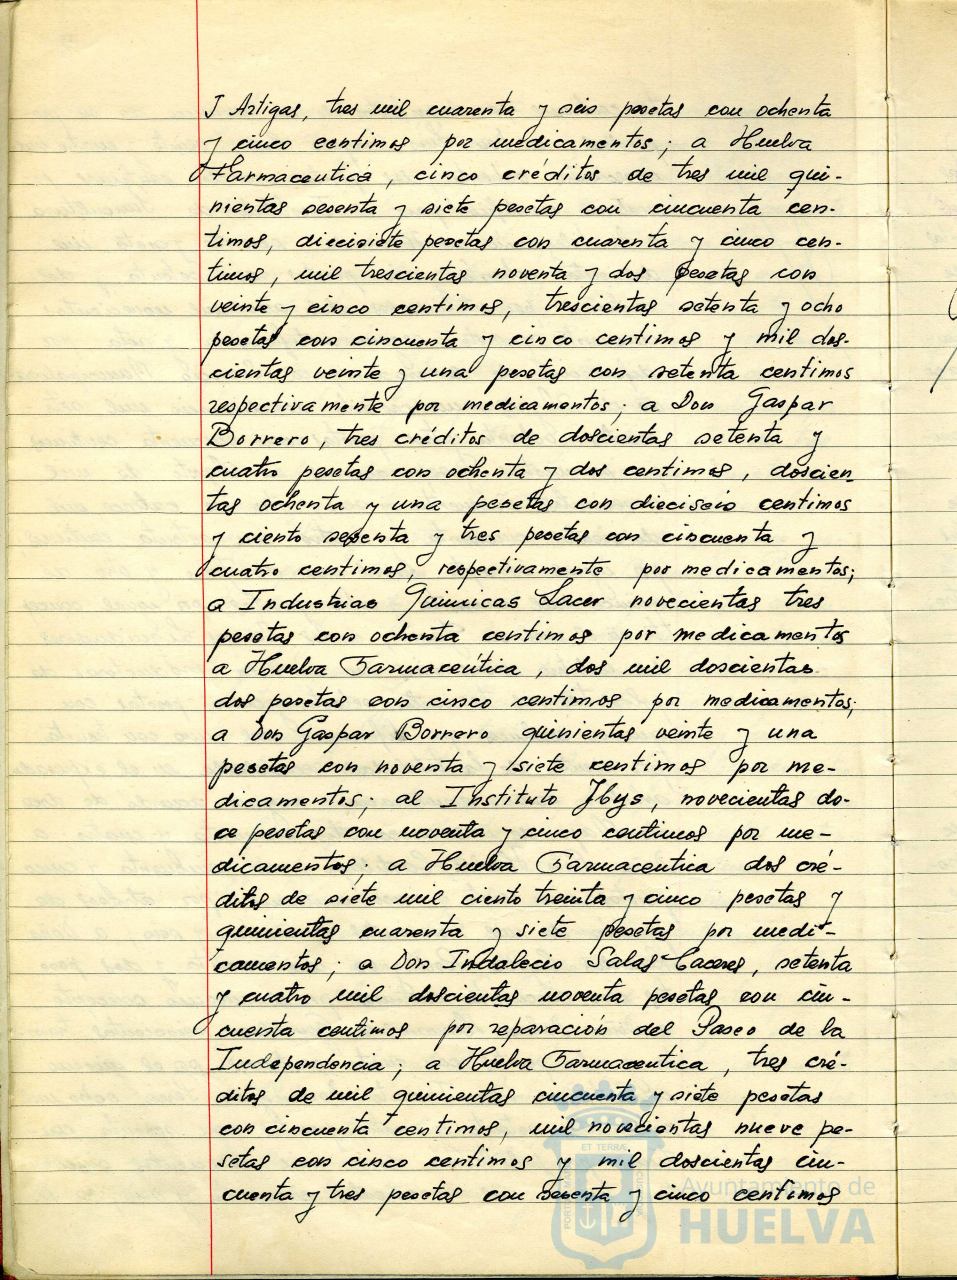 J Artigas, tres mil cuarenta y seis pesetas con ochenta
y cinco centimos por medicamentos; a Huelva
Farmaceutica, cinco créditos de tres mil qui-
nientas sesenta y siete pesetas con cincuenta cen-
timos, diecisiete pesetas con cuarenta y cinco cen-
timos, mil trescientas noventa y dos pesetas con
veinte y cinco centimos, trescientas setenta y ocho
pesetas con cincuenta y cinco centimos y mil dos-
cientas veinte y una pesetas con setenta centimos
respectivamente por medicamentos; a Don Gaspar
Borrero, tres créditos de doscientas setenta y
cuatro pesetas con ochenta y dos centimos, doscien-
tas ochenta y una pesetas con dieciseis centimos
y ciento sesenta y tres pesetas con cincuenta y
cuatro centimos, respectivamente por medicamentos;
a Industrias Quimicas Lacer novecientas tres
pesetas con ochenta centimos por medicamentos
a Huelva Farmaceútica, dos mil doscientas
dos pesetas con cinco centimos por medicamentos;
a Don Gaspar Borrero quinientas veinte y una
pesetas con noventa y siete centimos por me-
dicamentos; al Instituto Ibys, novecientas do-
ce pesetas con noventa y cinco centimos por me-
dicamentos; a Huelva Farmaceutica dos cré-
ditos de siete mil ciento treinta y cinco pesetas y
quinientas cuarenta y siete pesetas por medi-
camentos; a Don Indalecio Salas Caceres, setenta
y cuatro mil doscientas noventa pesetas con cin-
cuenta centimos por reparación del Paseo de la
Independencia; a Huelva Farmaceutica, tres cré-
ditos de mil quinientas cincuenta y siete pesetas
con cincuenta centimos, mil novecientas nueve pe-
setas con cinco centimos y mil doscientas cin-
cuenta y tres pesetas con sesenta y cinco centimos
ET TERRA
Ayuntamiento de
HUELVA